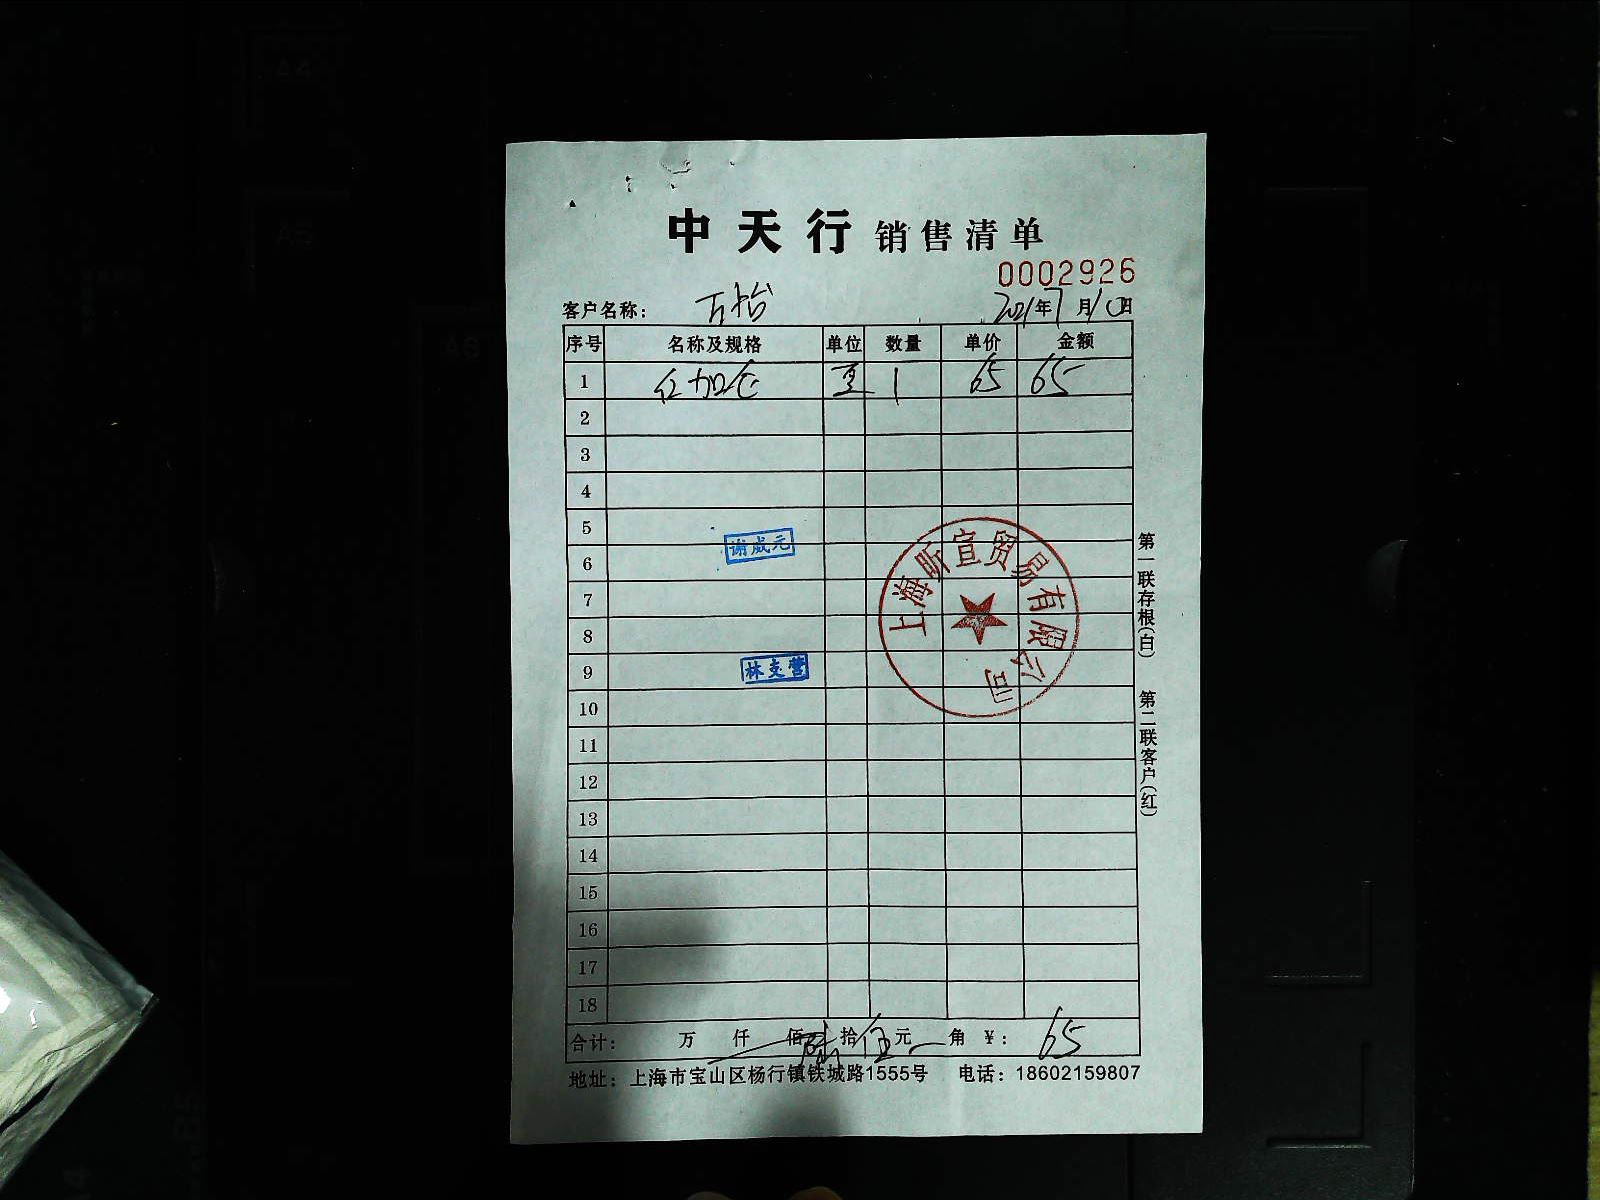 中天行 销售清单
0002926
客户名称： 古怡
2021年7月10日
序号 名称及规格 单位 数量 单价 金额
1 红加仑 1 65 65
2
3
4
5
谢威元
6
7
8
上海昕宣贸易有限公司
9
林支营
10
11
12
13
14
15
16
17
18
合计： 万 仟 佰 陆拾伍元 角 ￥： 65
地址：上海市宝山区杨行镇铁城路1555号 电话：18602159807
第一联存根(白) 第二联客户(红)